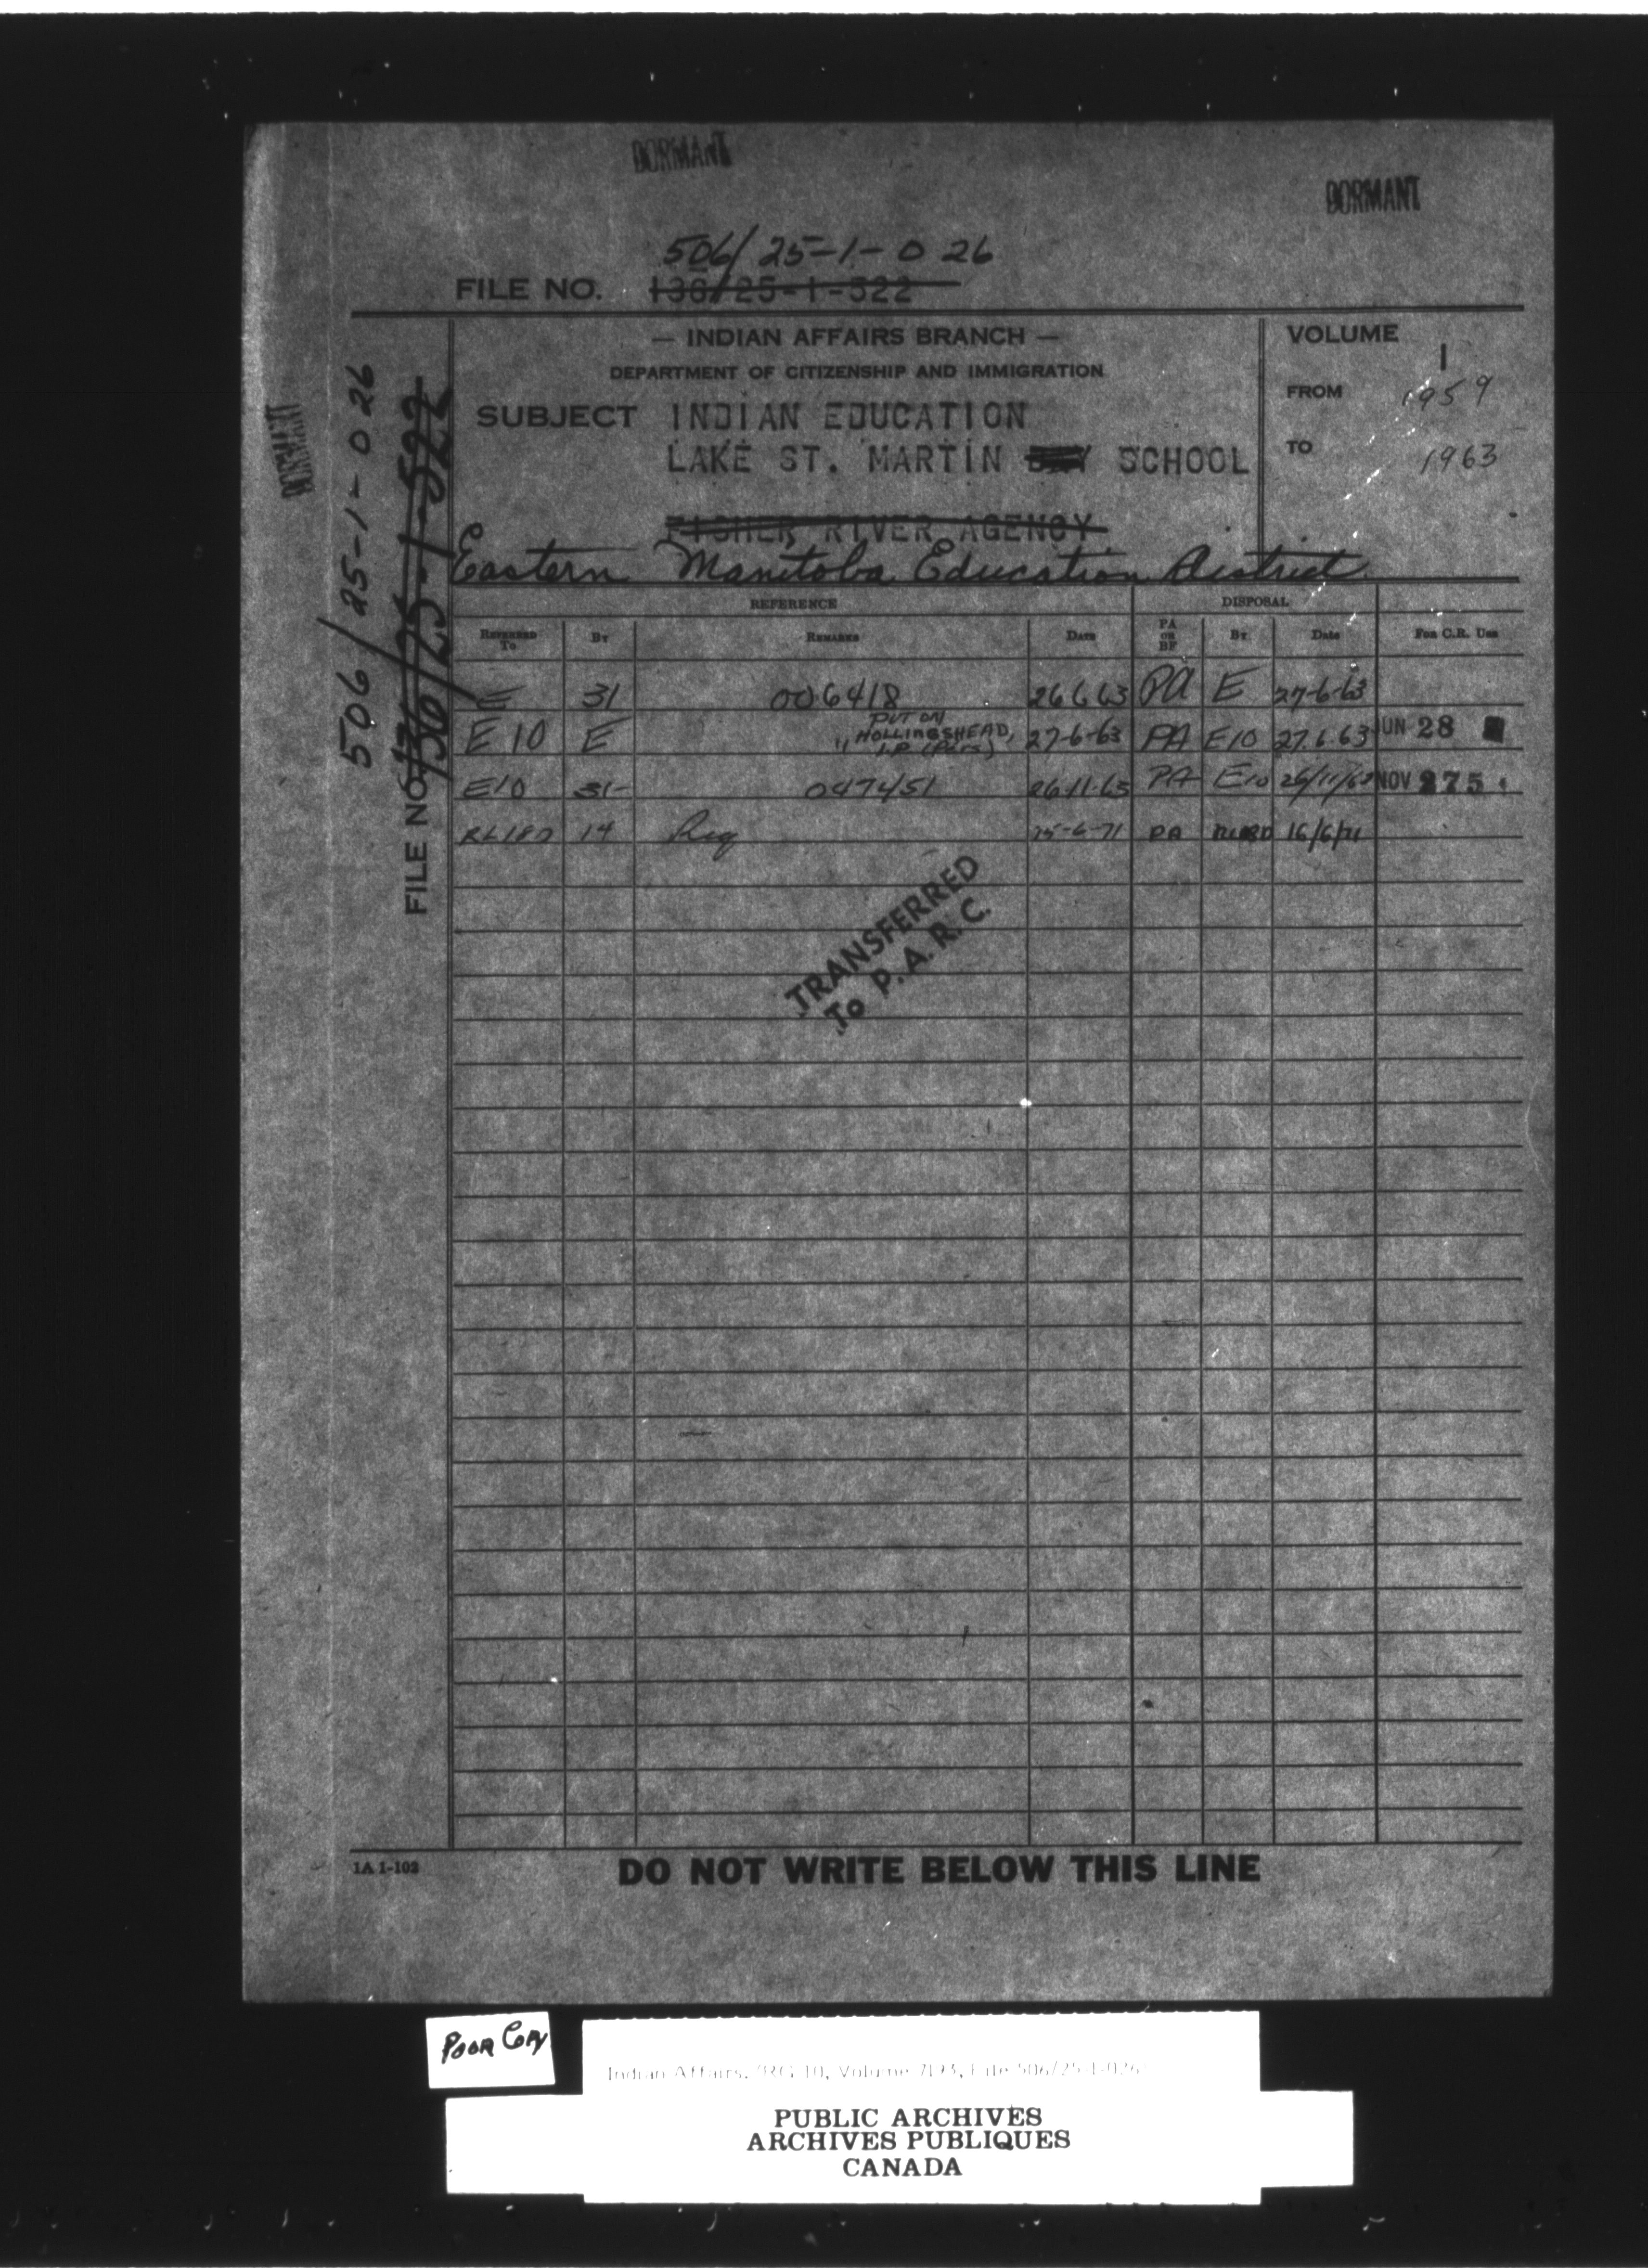 DORMANT
DORMANT
506/25-1-026
FILE NO. 136/25-1-522
— INDIAN AFFAIRS BRANCH —
DEPARTMENT OF CITIZENSHIP AND IMMIGRATION
VOLUME
1
FROM 1959
TO 1963
SUBJECT INDIAN EDUCATION
LAKE ST. MARTIN DAY SCHOOL
FISHER RIVER AGENCY
Eastern Manitoba Education District
DORMANT
506/25-1-026
FILE NO. 136/25-1-522
REFERENCE DISPOSAL
REFERRED To BY REMARKS DATE PA OR BF BY Date FOR C.R. USE
E 31 006418 26 6 63 PA E 27-6-63
E10 E PUT ON
" HOLLINGSHEAD, 27-6-63 PA E10 27.6.63 JUN 28
I.P (Pers)
E10 31- 047451 26-11-63 PA E10 26/11/63 NOV 27
14 Req 15-6-71 PA 16/6/71
TRANSFERRED
To P.A.R.C.
IA 1-102
DO NOT WRITE BELOW THIS LINE
POOR COPY
Indian Affairs. (RG 10, Volume 7193, File 506/25-1-026
PUBLIC ARCHIVES
ARCHIVES PUBLIQUES
CANADA